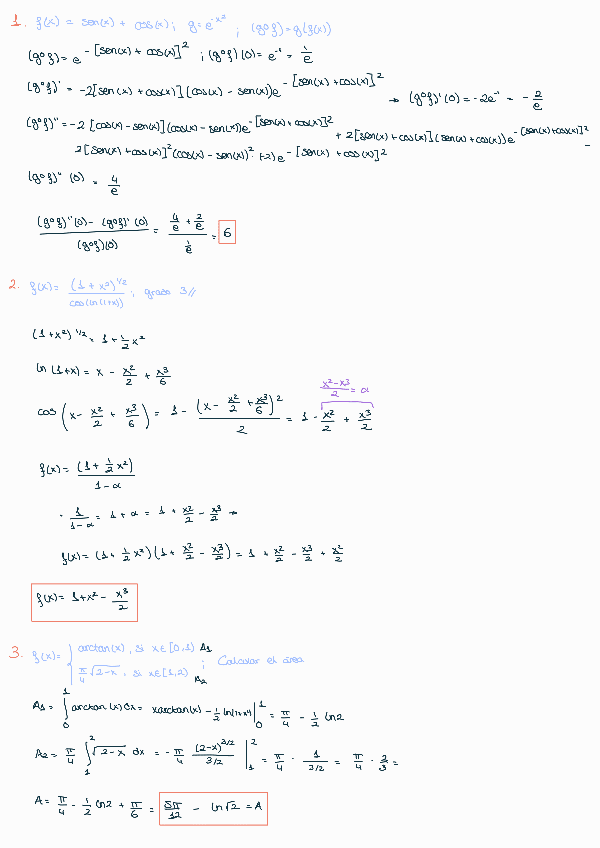 1. f(x) = sen(x) + cos(x); g = e^{-x^2}; (g∘f) = g(f(x))
(g∘f) = e^{-[sen(x) + cos(x)]^2}; (g∘f)(0) = e^{-1} = 1/e
(g∘f)' = -2[sen(x) + cos(x)](cos(x) - sen(x))e^{-[sen(x)+cos(x)]^2} → (g∘f)'(0) = -2e^{-1} = -2/e
(g∘f)'' = -2[cos(x) - sen(x)](cos(x) - sen(x))e^{-[sen(x)+cos(x)]^2} + 2[sen(x) + cos(x)](sen(x) + cos(x))e^{-[sen(x)+cos(x)]^2} -
2[sen(x) + cos(x)]^2(cos(x) - sen(x))^2 · (-2)e^{-[sen(x)+cos(x)]^2}
(g∘f)''(0) = 4/e
((g∘f)''(0) - (g∘f)'(0))/((g∘f)(0)) = (4/e + 2/e)/(1/e) = 6
2. f(x) = (1 + x^2)^{1/2}/cos(ln(1+x)); grado 3//
(1+x^2)^{1/2} = 1 + 1/2 x^2
ln(1+x) = x - x^2/2 + x^3/6
x^2-x^3/2 = α
cos(x - x^2/2 + x^3/6) = 1 - (x - x^2/2 + x^3/6)^2/2 = 1 - x^2/2 + x^3/2
f(x) = (1 + 1/2 x^2)/(1-α)
· 1/(1-α) = 1 + α = 1 + x^2/2 - x^3/2 →
f(x) = (1 + 1/2 x^2)(1 + x^2/2 - x^3/2) = 1 + x^2/2 - x^3/2 + x^2/2
f(x) = 1 + x^2 - x^3/2
3. f(x) = { arctan(x), si x∈[0,1) A1
π/4 √(2-x), si x∈[1,2) A2 ; Calcular el área
A1 = ∫_0^1 arctan(x)dx = xarctan(x) - 1/2 ln|1+x^2| |_0^1 = π/4 - 1/2 ln2
A2 = π/4 ∫_1^2 √(2-x) dx = -π/4 (2-x)^{3/2}/(3/2) |_1^2 = π/4 · 1/(3/2) = π/4 · 2/3 =
A = π/4 - 1/2 ln2 + π/6 = 5π/12 - ln√2 = A